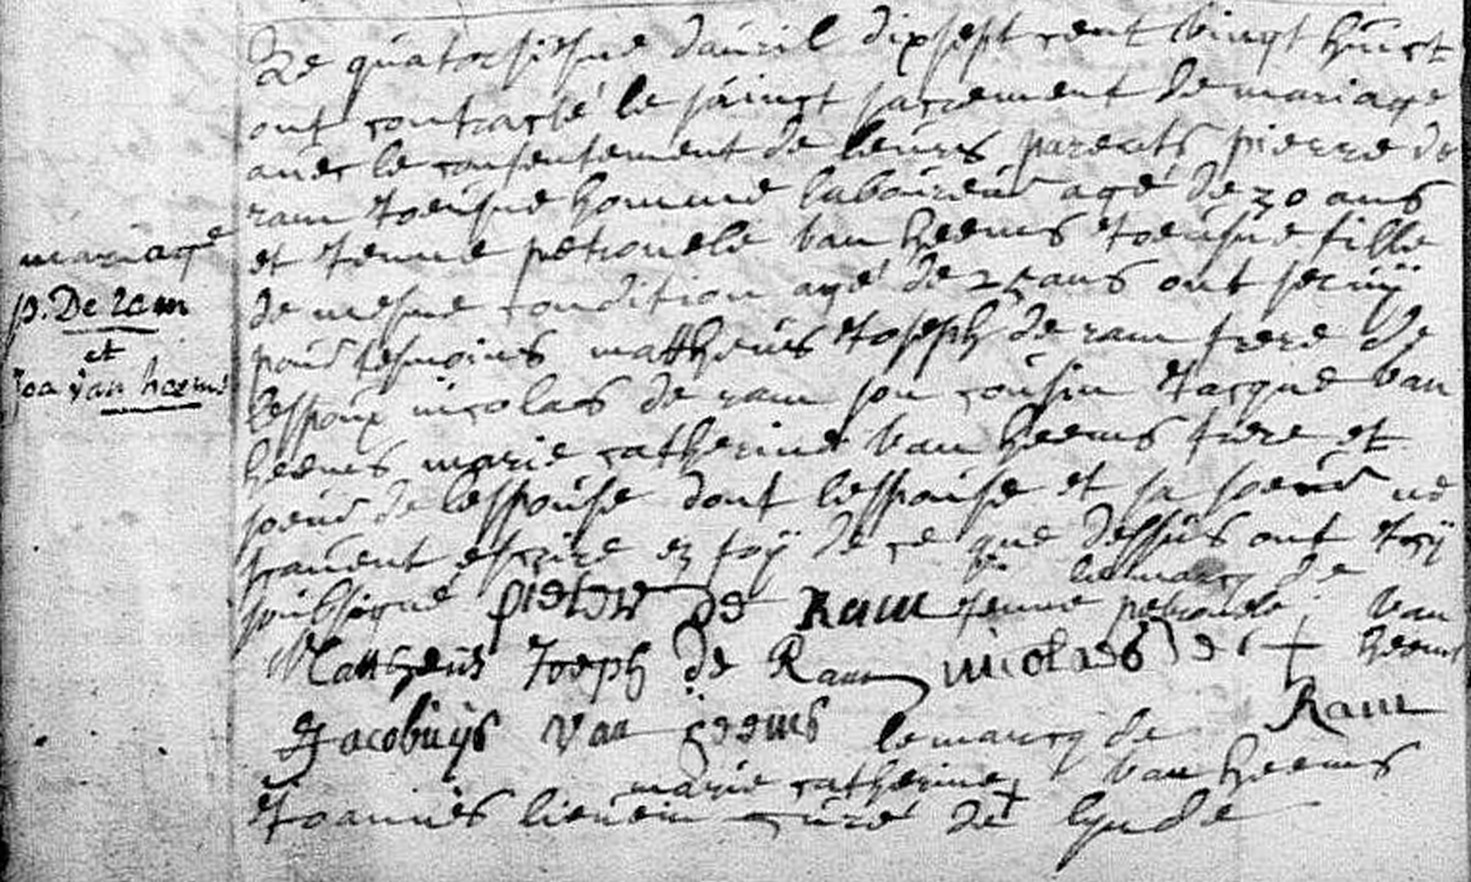 Le quatorsiesme dauril dix sept cent vingt huict
ont contracté le sainct sacrement de mariage
auec le consentement de leurs parents pierre de
ram Joeusne homme laboureur agé de 30 ans
et Jenne petronele van heems Joeusne fille
de mesme condition agé de ans ont seruÿ
pour tesmoins mattheus Joseph de ram frere de
lespoux nicolas de ram son cousin Jacque van
heems marie catherine van heems frere et
soeur de lespouse dont lespouse et sa soeur ne
scauent escrire en foÿ de ce que dessus ont Icÿ
soubsigné pieter de Ram
la marcq de Jenne petronele van heems
Mattheus Joseph de Ram nicolaes de + Ram
Jacobuÿs Van heems la marcq de
marie catherine + van heems
Joannes lieuein curé de lynde
mariage
p. De ram
et
Joa van heems